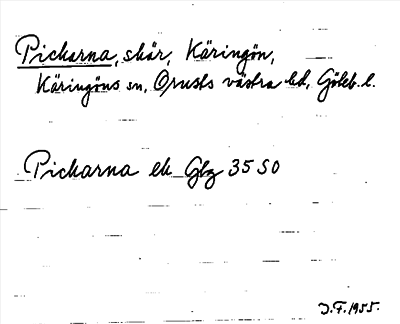 Pickarna, skär, Käringön,
Käringöns sn, Orusts västra hd, Göteb. l.
Pickarna ek Glg 35 SO
J.F. 1955.